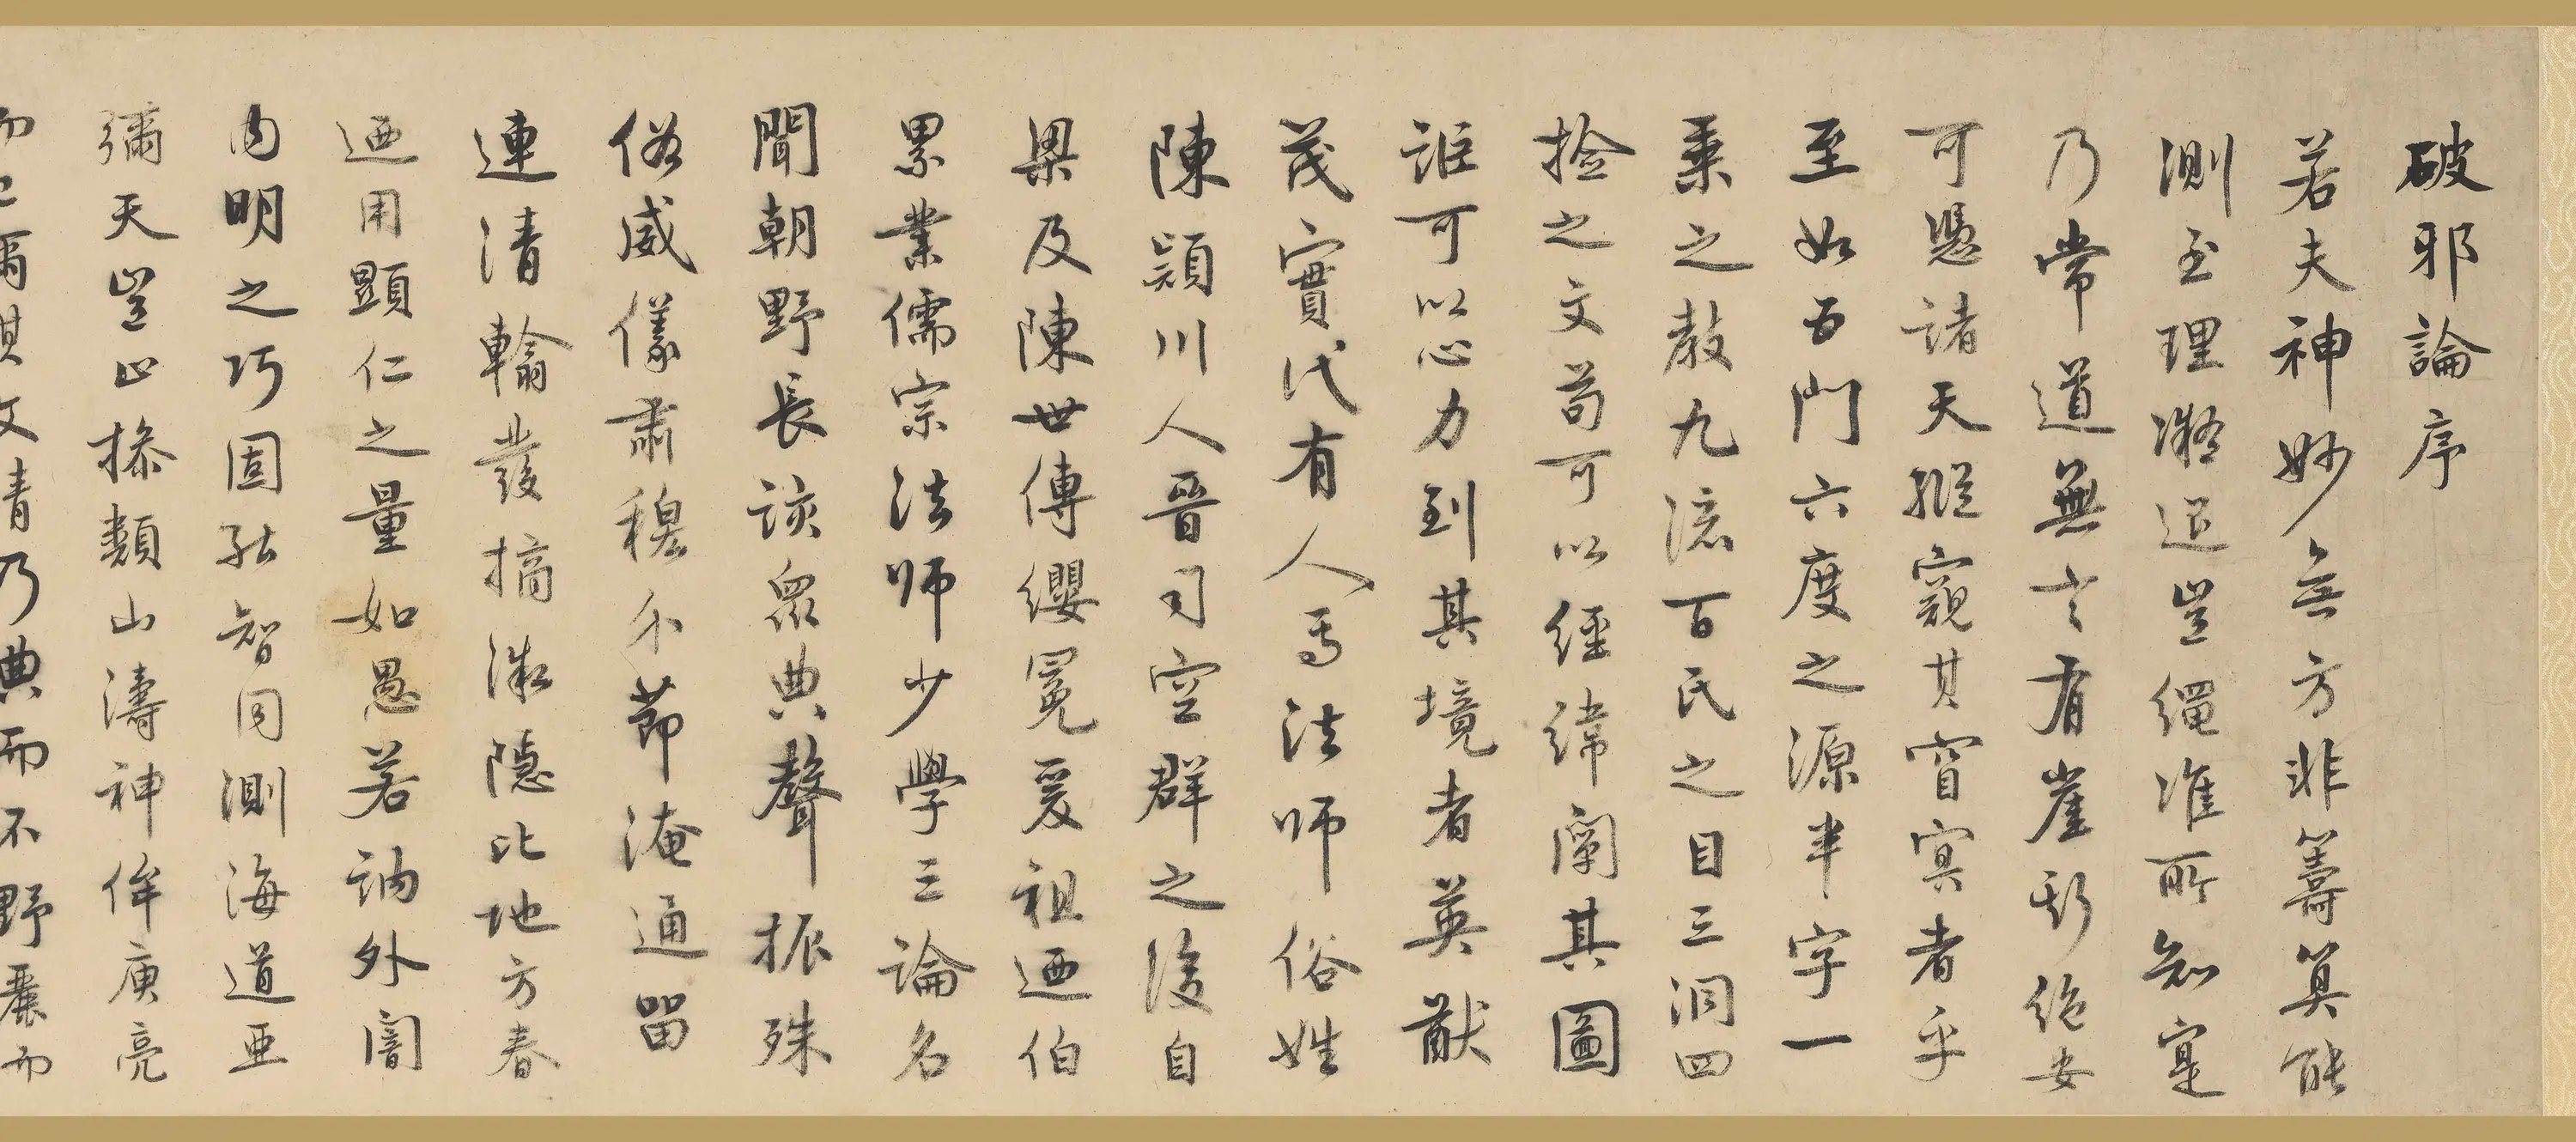 破邪論序
若夫神妙無方非籌筭能
測至理凝邈豈繩准所知寔
乃常道無言有崖斯絕安
可憑諸天縱窺其窅冥者乎
至如五門六度之源半字一
乘之教九流百氏之目三洞四
撿之文苟可以經緯闡其圖
詎可以心力到其境者英猷
茂實代有人焉法師俗姓
陳潁川人晉司空群之後自
梁及陳世傳纓冕爰祖迺伯
累業儒宗法師少學三論名
聞朝野長該眾典聲振殊
俗威儀肅穆介節淹通留
連清翰發摘微隱比地方春
迺用顯仁之量如愚若訥外闇
內明之巧固能智同測海道亞
彌天豈止操類山濤神侔庾亮
而已爾其文情乃典而不野麗而